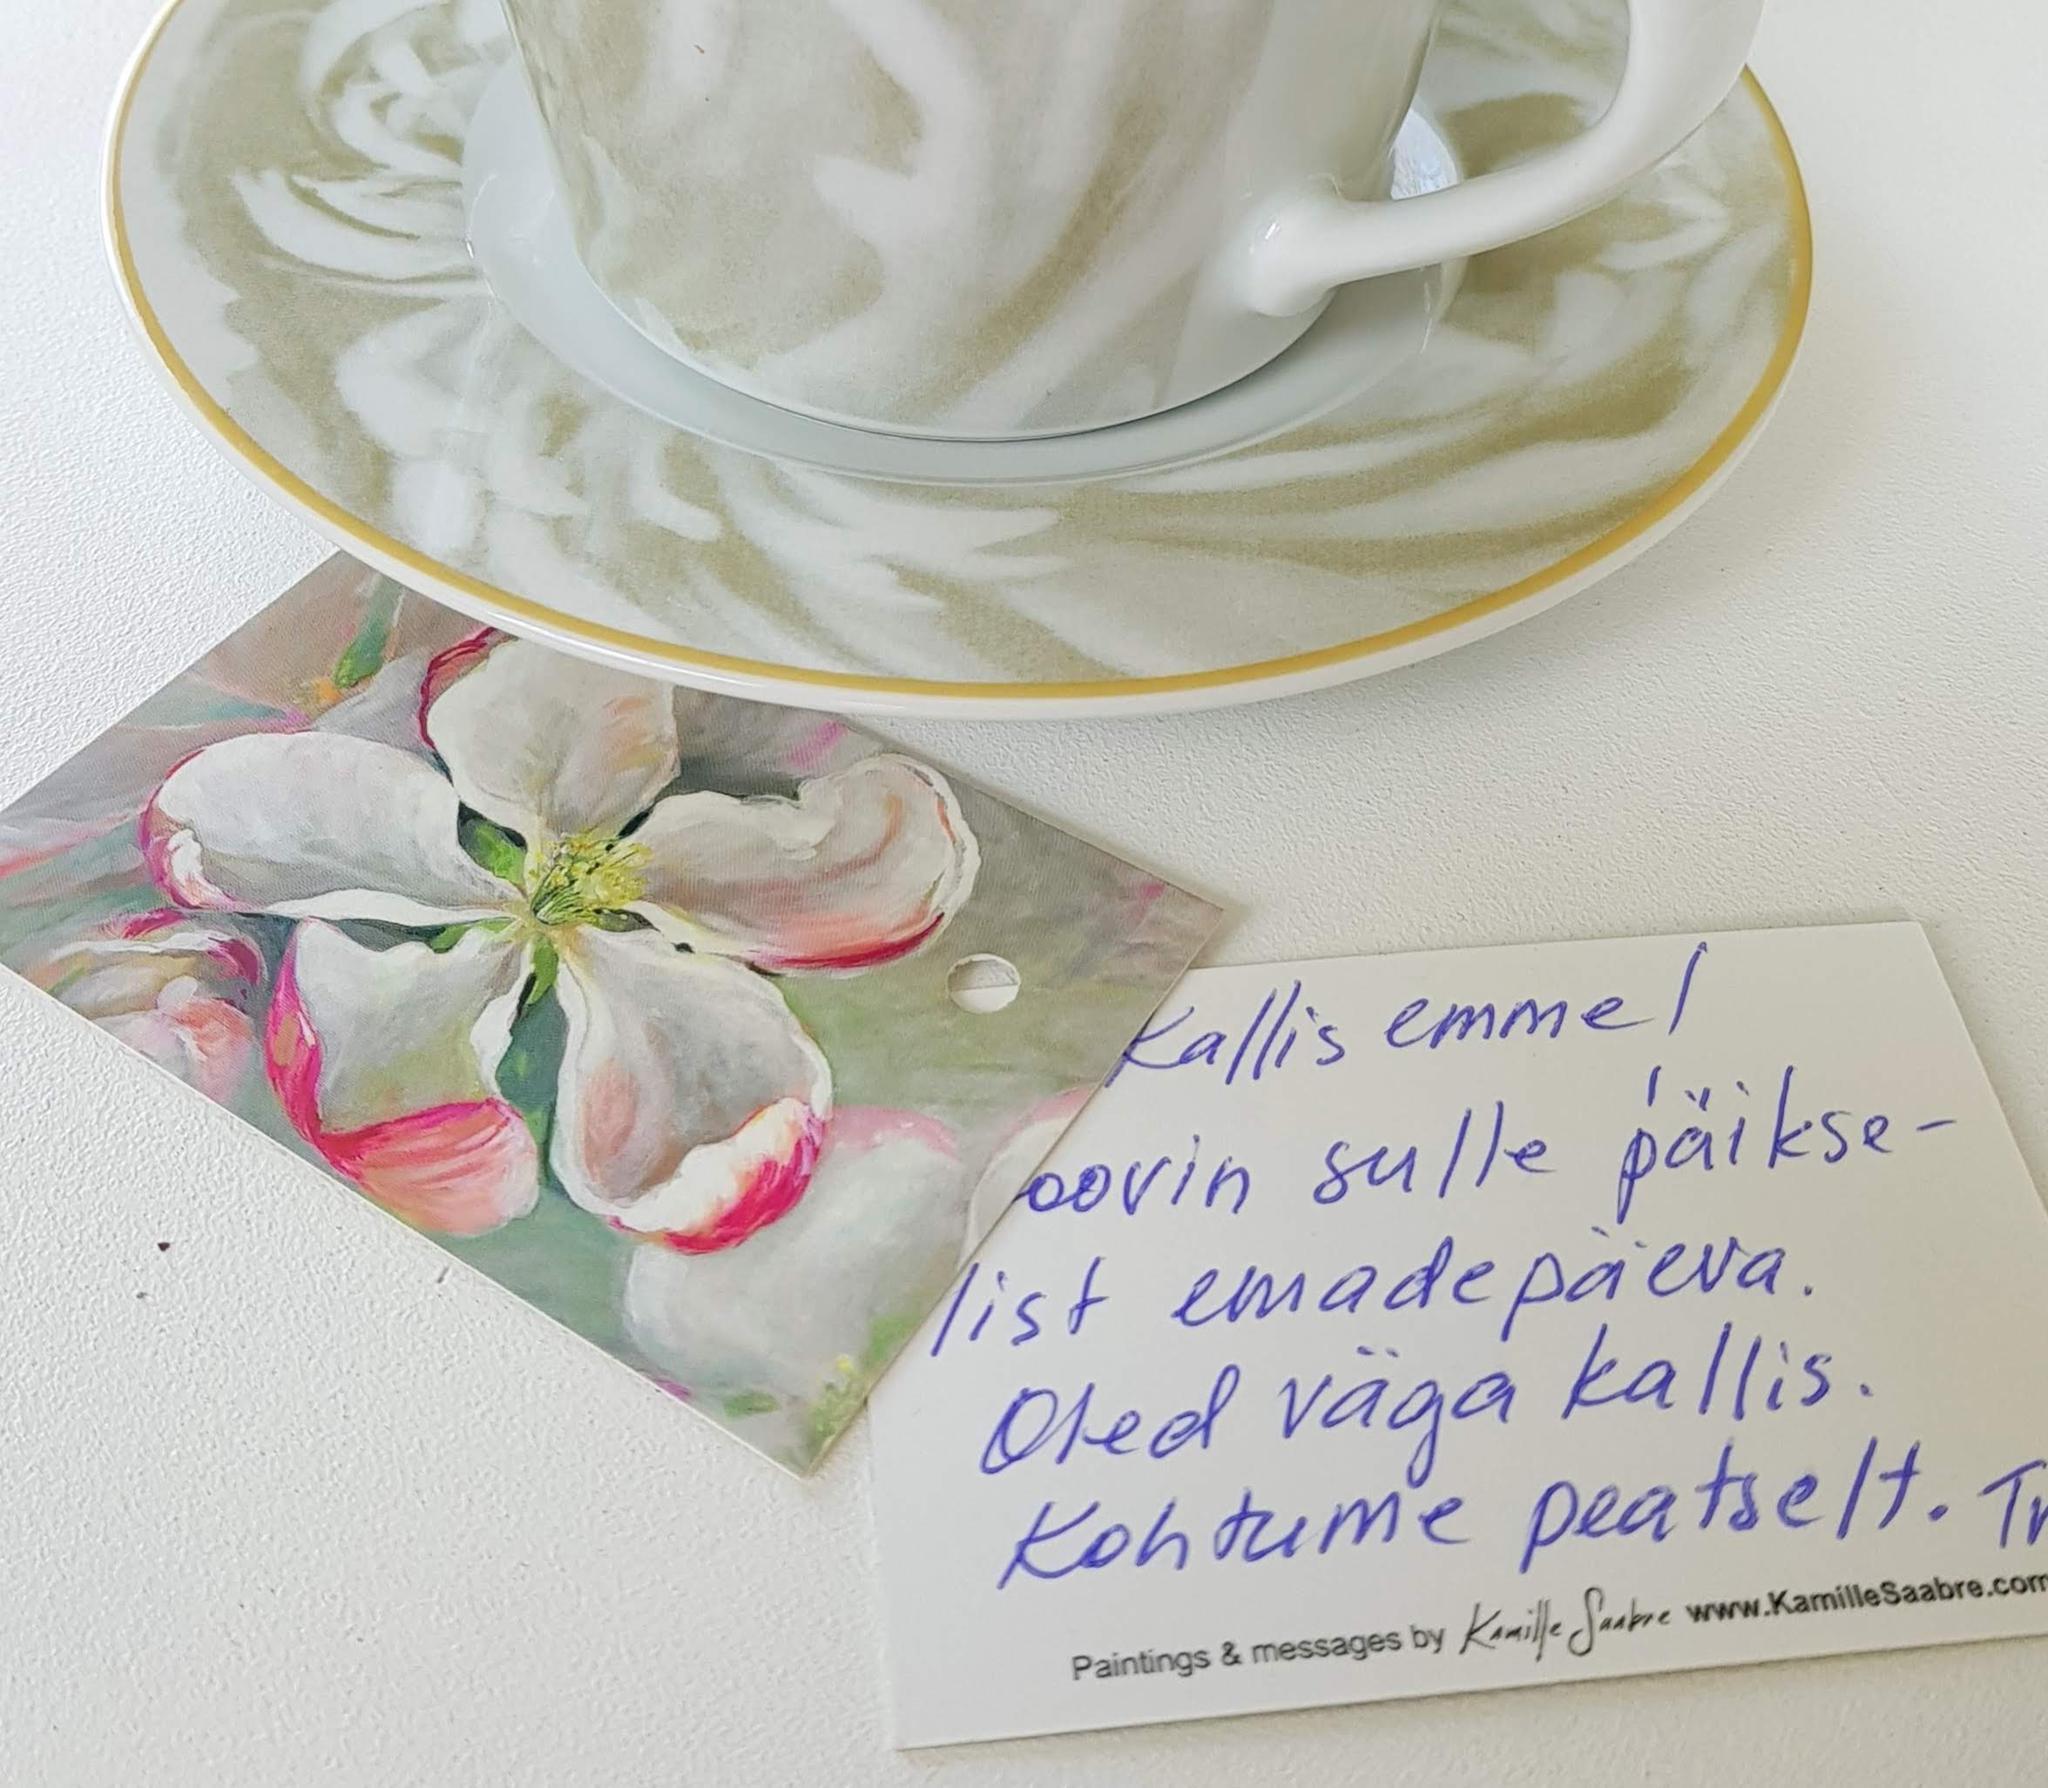 Kallis emme!
oovin sulle päikse-
list emadepäeva.
Oled väga kallis.
Kohtume peatselt. Tr
Paintings & messages by Kamille Saabre www.KamilleSaabre.com